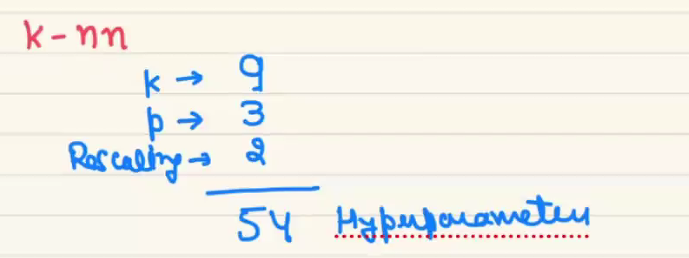 k-nn
k → 9
p → 3
Rescaling → 2
54 Hyperparameters